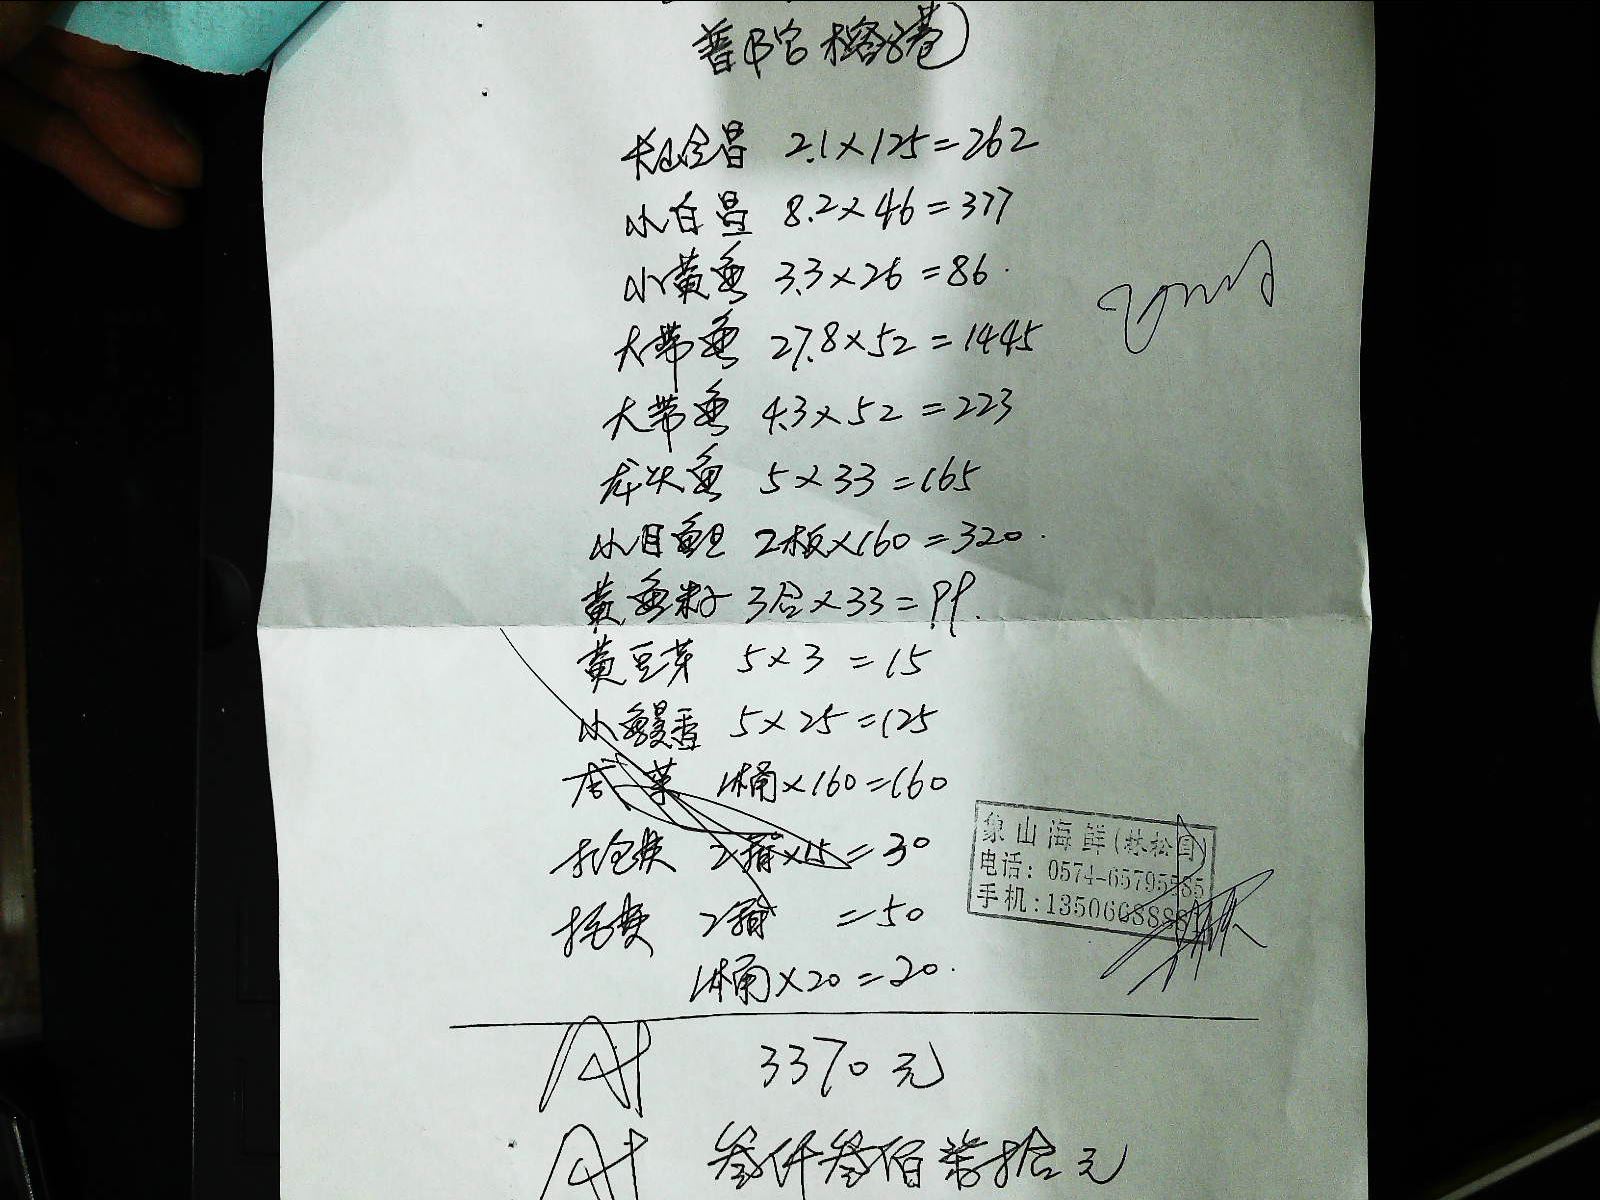 大山金昌 2.1×125=262
小白昌 8.2×46=377
小黄鱼 3.3×26=86
大带鱼 27.8×52=1445
大带鱼 4.3×52=223
龙头鱼 5×33=165
小目鱼旦 2板×160=320
黄鱼籽 3合×33=99
黄豆芽 5×3=15
小鳗香 5×25=125
1桶×160=160
2箱×15=30
托费 2箱 =50
1桶×20=20
象山海鲜(林松国)
电话: 0574-65795585
手机:1350668888
3370元
叁仟叁佰柒拾元